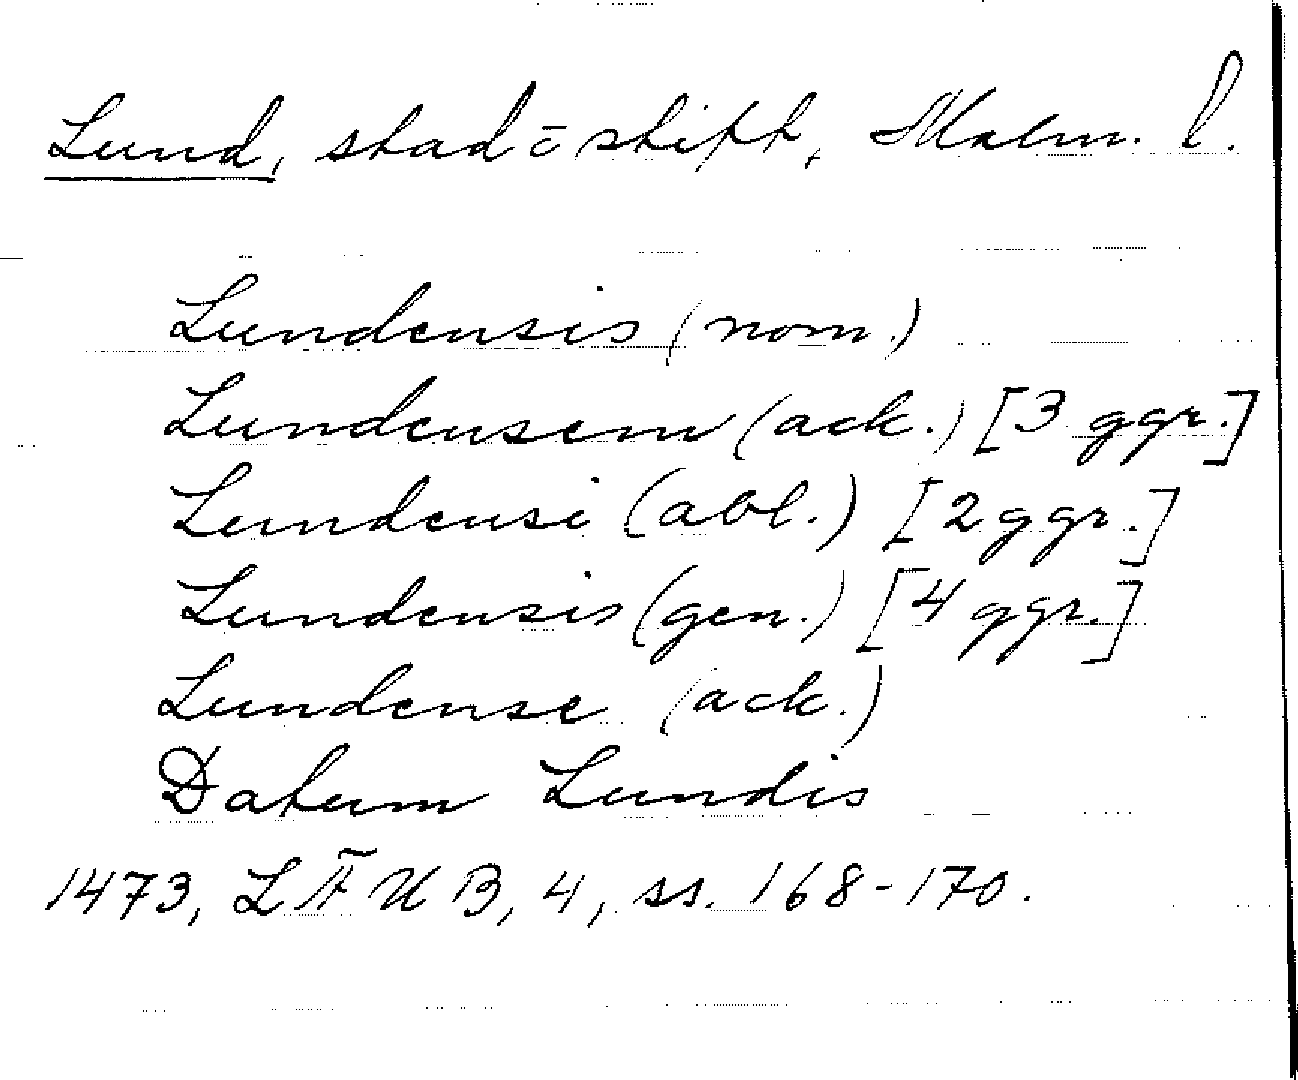 Lund, stad = stift, Malm. l.
Lundensis (nom.)
Lundensem (ack.) [3 ggr.]
Lundensi (abl.) [2 ggr.]
Lundensis (gen.) [4 ggr.]
Lundense (ack.)
Datum Lundis
1473, LÄUB, 4, ss. 168-170.